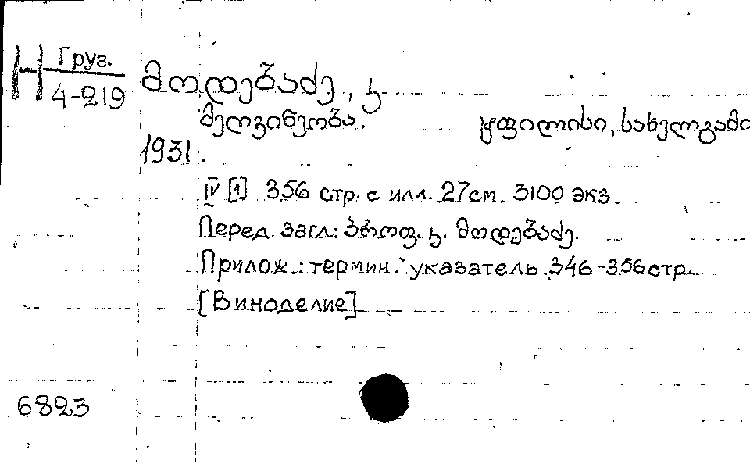 Н Груз. 4-219
მოდებაძე, კ.
მეღვინეობა. ტფილისი, სახელგამი
1931.
IV [1] 356 стр. с илл. 27см. 3100 экз.
Перед загл: პროფ. კ. მოდებაძე.
Прилож.: термин. указатель 346-356стр.
[Виноделие]
6823